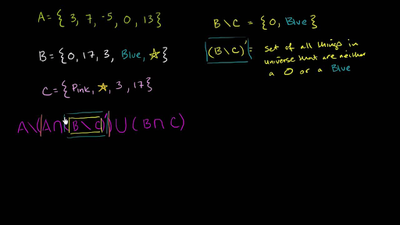 A = { 3, 7, -5, 0, 13 }
B = {0, 17, 3, Blue, ☆}
C = { Pink, ☆, 3, 17 }
A \ (A ∩ (B \ C)') ∪ ( B ∩ C )
B \ C = { 0, Blue }
(B \ C)' = set of all things in
universe that are neither
a 0 or a Blue